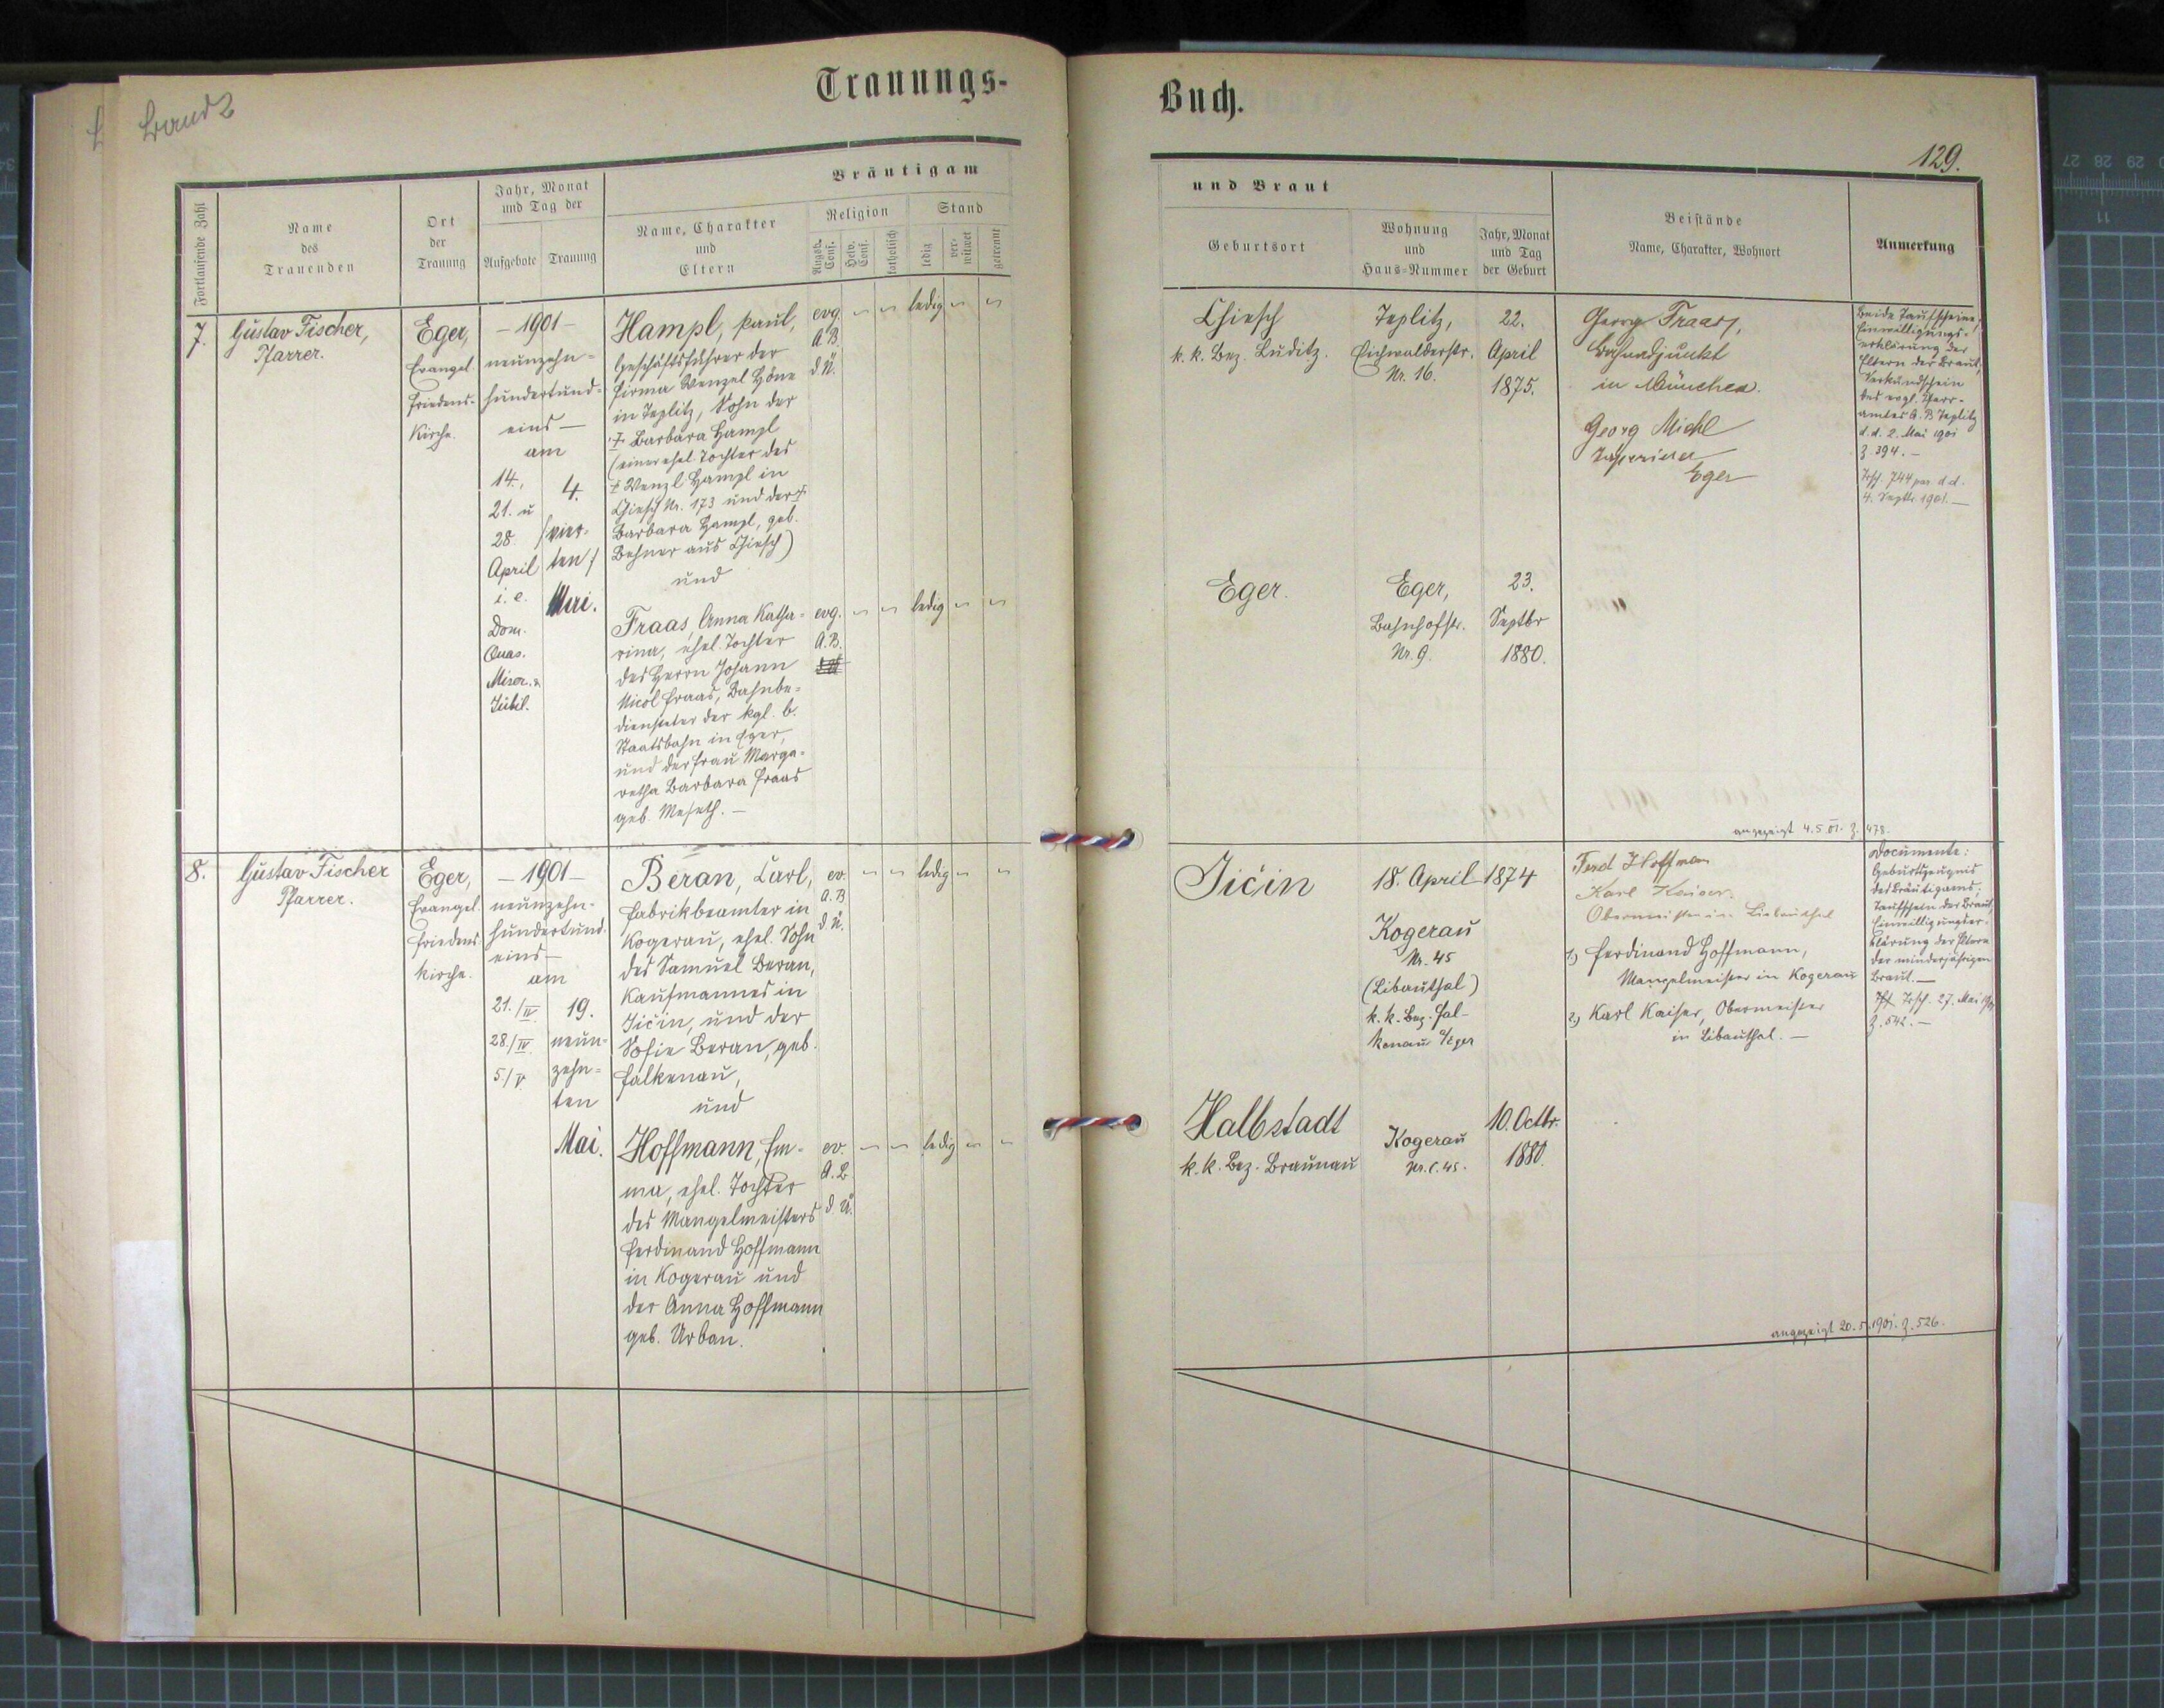 Band 2
Trauungs-
Buch.
129.
Fortlaufende Zahl
Name
des
Trauenden
Ort
der
Trauung
Jahr, Monat
und Tag der
Aufgebote
Trauung
Bräutigam
Name, Charakter
und
Eltern
Religion
Augsb.
Conf.
Helv.
Conf.
katholisch
Stand
ledig
ver-
witwet
getrennt
und Braut
Geburtsort
Wohnung
und
Haus-Nummer
Jahr, Monat
und Tag
der Geburt
Beistände
Name, Charakter, Wohnort
Anmerkung
7.
Gustav Fischer,
Pfarrer.
Eger,
Evangel.
Friedens-
Kirche.
- 1901 -
neunzehn-
hundertund-
eins —
am
14.,
21. u
28.
April
i. e.
Dom.
Quas.
Miser. &
Jubil.
4.
/vier-
ten/
Mai.
Hampl, Paul,
Geschäftsführer der
Firma Wenzel Höne
in Teplitz, Sohn der
† Barbara Hampl
(einer ehel. Tochter des
† Wenzl Hampl in
Chiesch Nr. 173 und der †
Barbara Hampl, geb.
Behner aus Chiesch)
und
Fraas, Anna Katha-
rina, ehel. Tochter
des Herrn Johann
Nicol Fraas, Bahnbe-
diensteter der kgl. b.
Staatsbahn in Eger,
und der Frau Marga-
retha Barbara Fraas
geb. Meseth. —
evg.
A.B.
ledig
evg.
A.B.
ledig
Chiesch
k. k. Bez. Luditz.
Teplitz,
Eichwalderstr.
Nr. 16.
22.
April
1875.
Georg Fraas,
Bahnadjunkt
in München.
Georg Michl
Tapezierer
Eger
Beide Taufscheine,
Einwilligungs-
erklärung der
Eltern der Braut,
Verkündschein
des evgl. Pfarr-
amtes A. B Teplitz
d. d. 2. Mai 1901
Z. 394. —
Trsch. 744 par. d. d.
4. Septbr. 1901. —
Eger.
Eger,
Bahnhofstr.
Nr. 9.
23.
Septbr
1880.
angezeigt 4. 5. 01. Z. 478.
8.
Gustav Fischer
Pfarrer.
Eger,
Evangel.
Friedens-
kirche.
- 1901 -
neunzehn-
hundertund-
eins —
am
21./IV.
28./IV.
5./V.
19.
neun-
zehn-
ten
Mai.
Beran, Carl,
Fabrikbeamter in
Kogerau, ehel. Sohn
des Samuel Beran,
Kaufmannes in
Jičin, und der
Sofie Beran, geb.
Falkenau,
und
Hoffmann, Em-
ma, ehel. Tochter
des Mangelmeisters
Ferdinand Hoffmann
in Kogerau und
der Anna Hoffmann
geb. Urban.
ev.
A.B
ledig
ev.
A.B
ledig
Jičin
18. April 1874
Kogerau
Nr. 45
(Libauthal)
k. k. Bez. Fal-
kenau a/Eger
Ferd Hoffman
Karl Kaiser
Obermeister in Libauthal
1.) Ferdinand Hoffmann,
Mangelmeister in Kogerau
2.) Karl Kaiser, Obermeister
in Libauthal. —
Documente:
Geburtszeugnis
des Bräutigams;
Taufschein der Braut,
Einwilligungser-
klärung der Eltern
der minderjährigen
Braut. —
Trsch. 27. Mai 1901
Z. 542. —
Halbstadt
k. k. Bez. Braunau
Kogerau
Nr. C. 45.
10. Octbr.
1880.
angezeigt 20. 5. 1901. Z. 526.